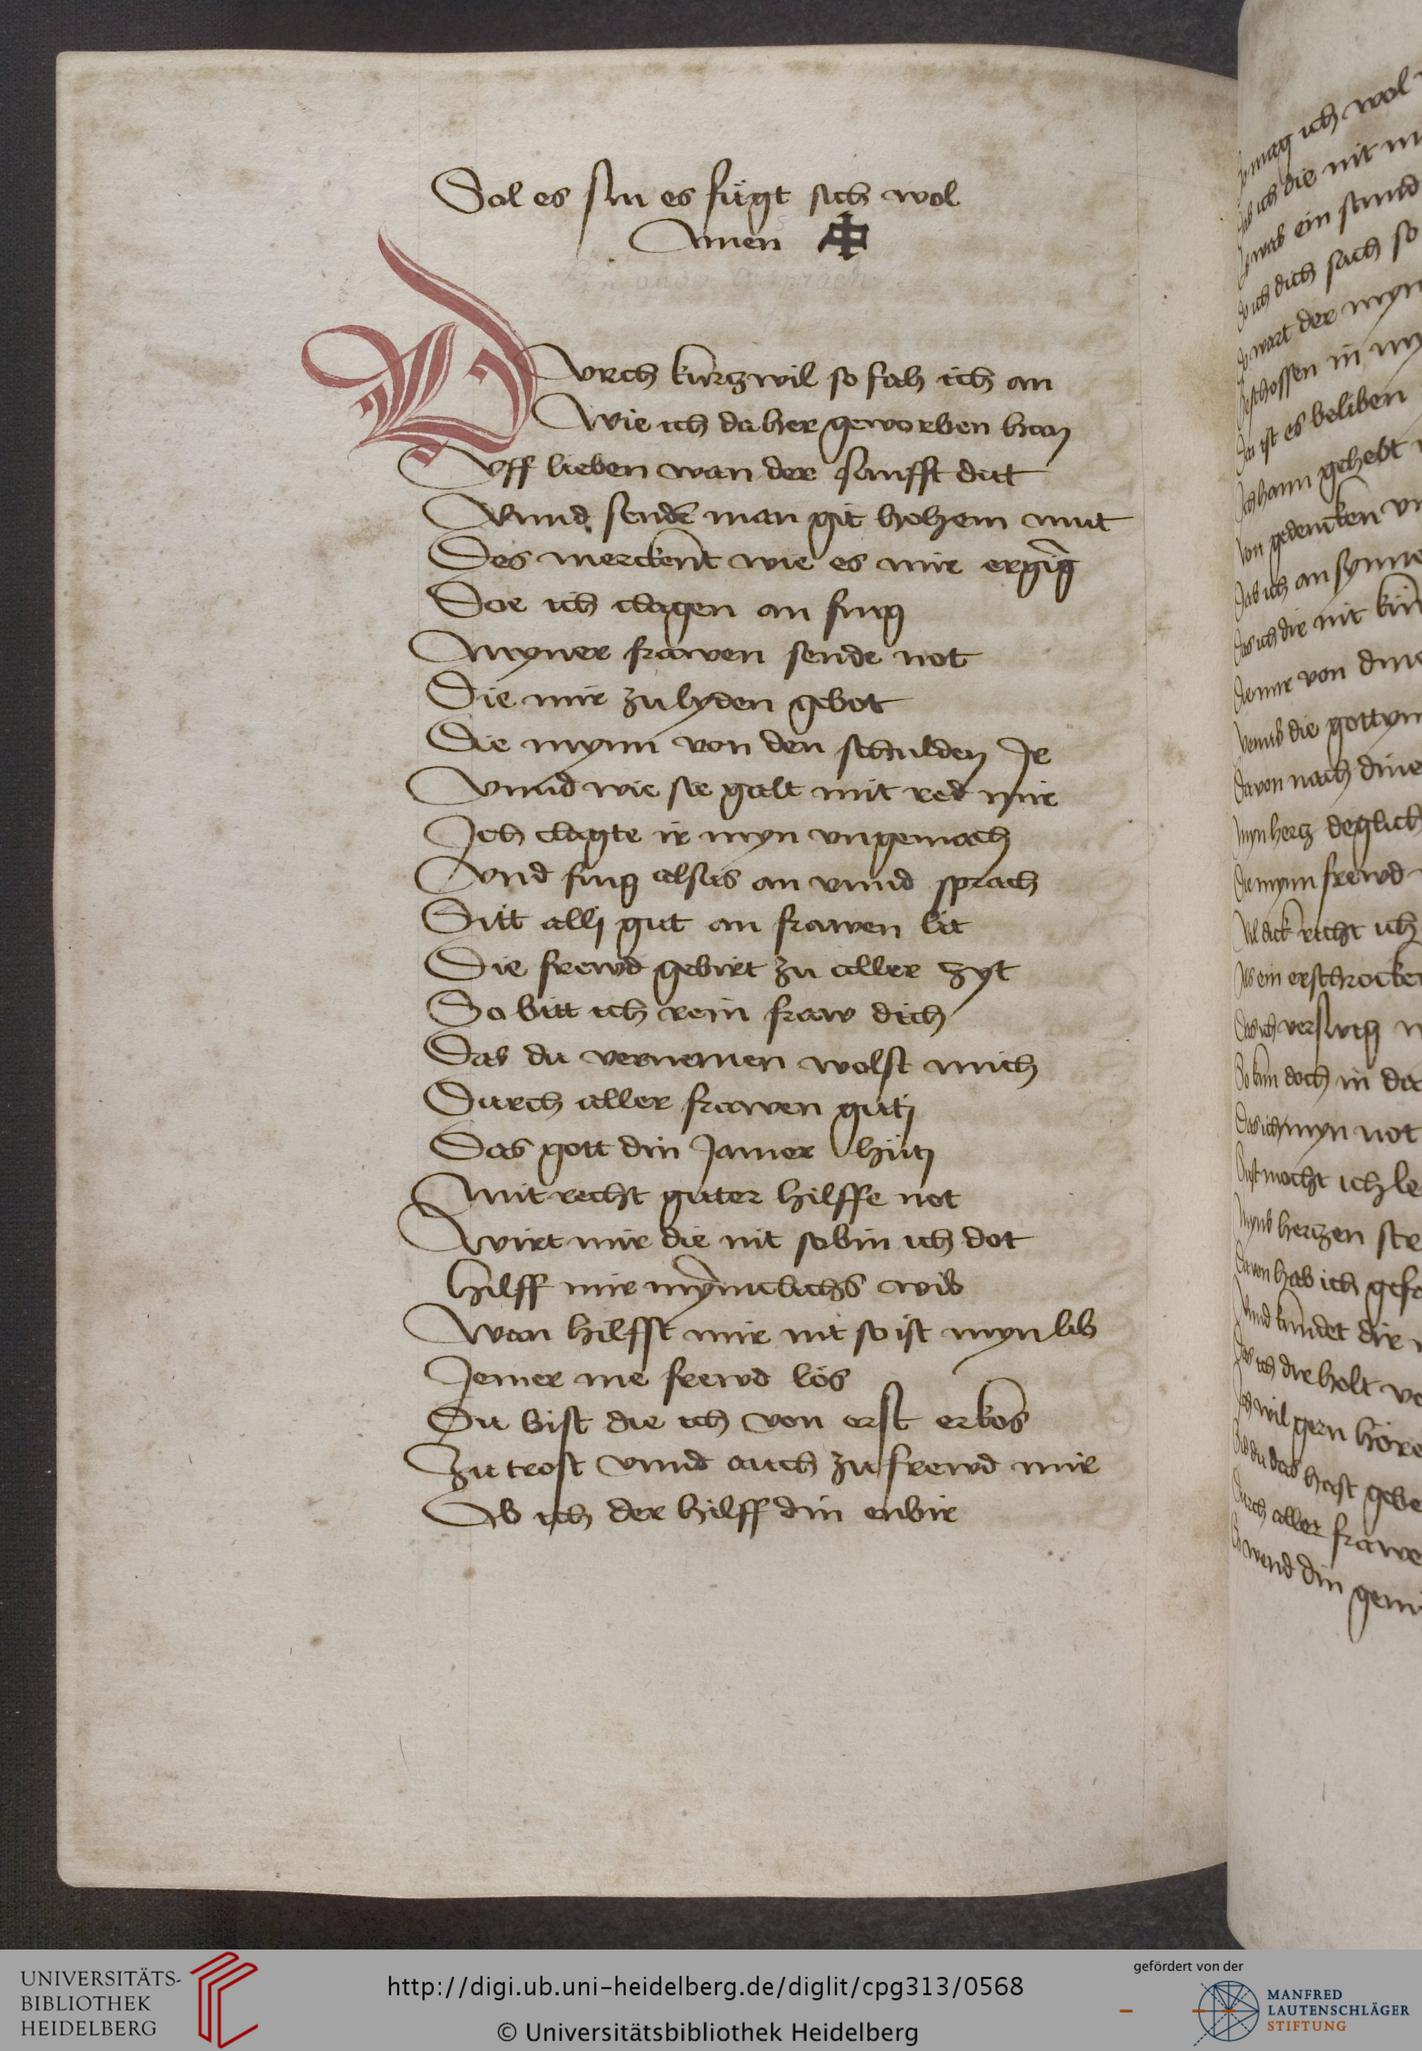 Sol es sin es fügt sich wol
Amen
Durch kurtzwil so fah ich an
Wie ich da her geworben han
Vff lieben wan der sanfft dut
Vnnd senden̄ man git hohem mut
Des merckent wie es mir erginḡ
Doe ich clagen an fing
Myner frawen sende not
Die mir zu lyden gebot
Die mynn von den schulden Ir
Vnnd wie sie galt mit red mir
Ich clagte ir myn vngemach
Vnd fing alsus an vnnd sprach
Sitt alli gut an frawen lit
Die frewd gebirt zu aller zyt
So bitt ich rein fraw dich
Das du vernemen wolst mich
Durch aller frawen guti
Das gott din Jamer hüti
Mit recht guter hilffe not
Wirt mir die nit so bin ich dot
hilff mir mynnclichs wib
Wan hilfft mir nit so ist myn lib
Jemer me frewd lös
Du bist die ich von erst erkos
Zu trost vnnd auch zu frewd mir
Ob ich der hilff din enbir
So mag ich wol
ich die nit
ein stund
ich dich sach so
wart der myn
Geschossen in my
Da ist es beliben
gehebt
Von gedencken
Das ich an synne
Das ich die nit
von dine
Venus die gottyn
Da von nach dine
Myn hertz deglich
Die mynn frewd
Vil dick recht ich
Als ein erschrocken
Das ich verswig
So kan doch in
Das ich myn not
Sust mocht ich le
Myns hertzen
Da von hab ich
Vnnd kundet dir
Das ich dir holt
Ich wil gern höre
hast gebe
Durch aller frawe
So wend din
UNIVERSITÄTS-
BIBLIOTHEK
HEIDELBERG
http://digi.ub.uni-heidelberg.de/diglit/cpg313/0568
© Universitätsbibliothek Heidelberg
gefördert von der
MANFRED
LAUTENSCHLÄGER
STIFTUNG